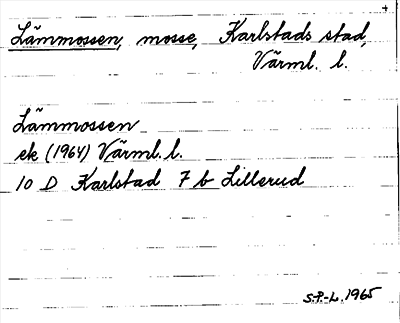 Lämmossen, mosse, Karlstads stad,
Värml. l.
Lämmossen
ek (1964) Värml. l.
10 D Karlstad 7 b Lillerud
S.P.-L. 1965